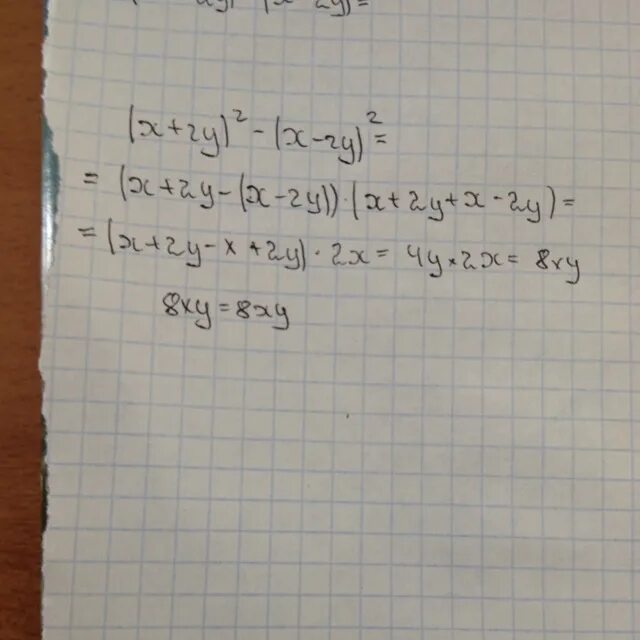 (x+2y)²-(x-2y)²=
=(x+2y-(x-2y))·(x+2y+x-2y)=
=(x+2y-x+2y)·2x=4y*2x=8xy
8xy=8xy